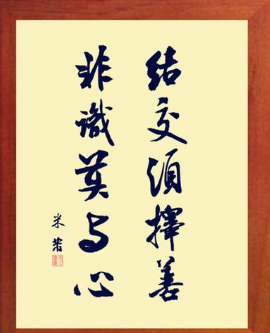 结交须择善
非识莫与心
米芾